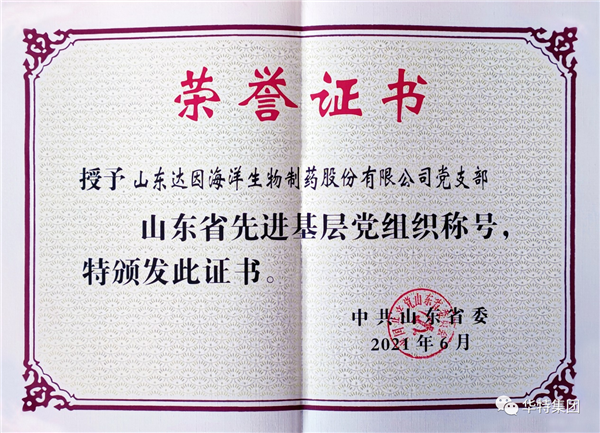 荣誉证书
授予山东达因海洋生物制药股份有限公司党支部
山东省先进基层党组织称号，
特颁发此证书。
中共山东省委
2021年6月
华特集团